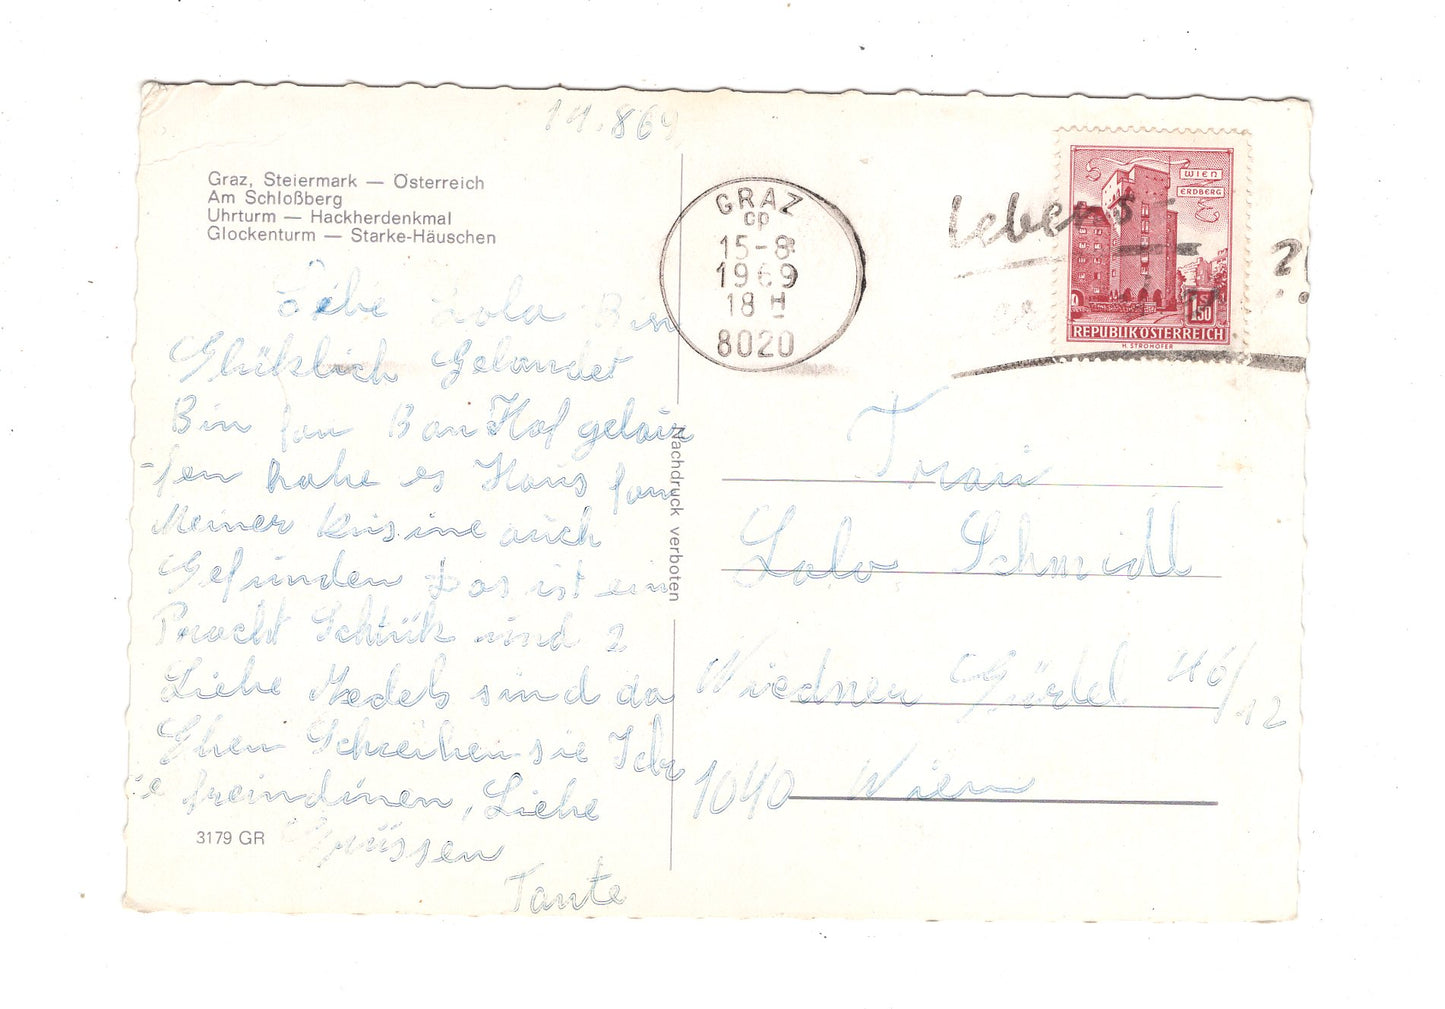 14.869
Graz, Steiermark — Österreich
Am Schloßberg
Uhrturm — Hackherdenkmal
Glockenturm — Starke-Häuschen
Liebe Lola Bin
Glüklich Gelandet
Bin fon Ban Hof gelau
-fen habe es Haus fon
Meiner kusine auch
Gefunden Das ist ein
Pracht Schtük und 2
Liebe Medels sind da
Schreiben sie Ihr
freindinen, Liebe
Grüssen
Tante
3179 GR
Nachdruck verboten
GRAZ
cp
15-8
1969
18 H
8020
lebens
?
WIEN
ERDBERG
1.50
REPUBLIK ÖSTERREICH
H. STROHOFER
Frau
Lola Schmidl
Wiedner Gürtel 46/12
1040 Wien